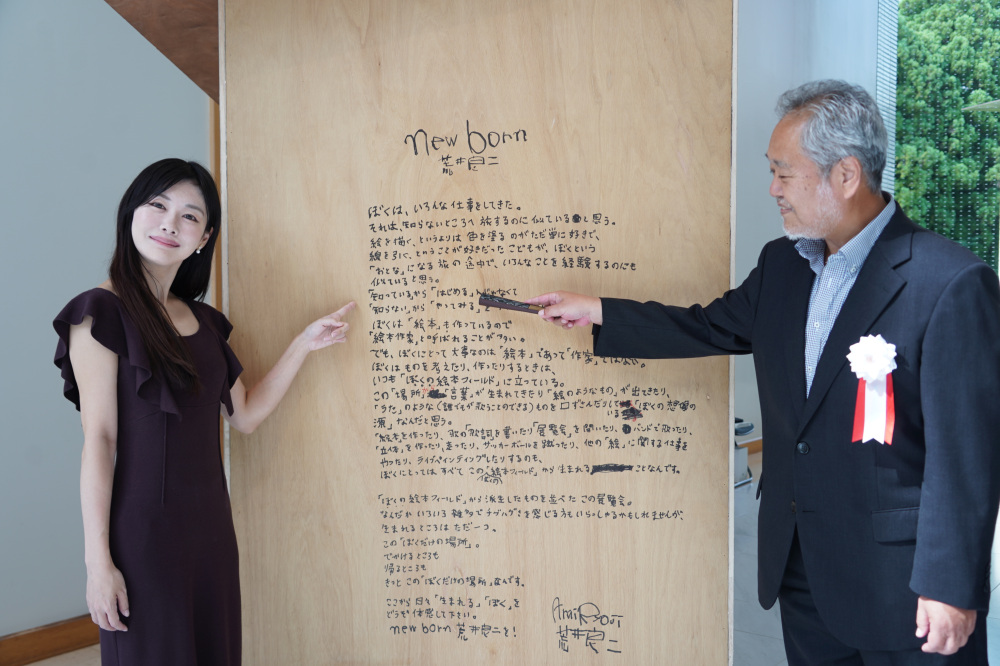 new born
荒井良二
ぼくは、いろんな仕事をしてきた。
それは、知らないところへ旅するのに似ていると思う。
絵を描く、というよりは色を塗るのがただ単に好きで、
線を引く、ということが好きだったこどもが、ぼくという
「おとな」になる旅の途中で、いろんなことを経験するのにも
似ていると思う。
知っているから「はじめる」んじゃなくて
「知らない」から「やってみる」
ぼくは「絵本」も作っているので
「絵本作家」と呼ばれることが多い。
でも、ぼくにとって大事なのは「絵本」であって「作家」ではない。
ぼくはものを考えたり、作ったりするときは、
いつも「ぼくの絵本フィールド」に立っている。
この「場所」「言葉」が生まれてきたり「絵のようなもの」が出てきたり、
「うた」のような(誰でもが歌うことのできる)ものを口ずさんだりしている「ぼくの想像の
源」なんだと思う。
「絵本」を作ったり、歌の「歌詞」を書いたり「展覧会」を開いたり、バンドで歌ったり、
「立体」を作ったり、走ったり、サッカーボールを蹴ったり、他の「絵」に関する仕事を
やったり、ライブペインティングしたりするのも、
ぼくにとっては、すべてこの「絵本フィールド」から生まれることなんです。
「ぼくの絵本フィールド」から派生したものを並べたこの展覧会。
なんだかいろいろ雑多でチグハグさを感じる方もいらっしゃるかもしれませんが、
生まれるところはただ一つ、
この「ぼくだけの場所」。
でかけるところも
帰るところも
きっとこの「ぼくだけの場所」なんです。
ここから日々「生まれる」「ぼく」を
どうぞ体感して下さい。
new born 荒井良二を!
Arai Ryoji
荒井良二